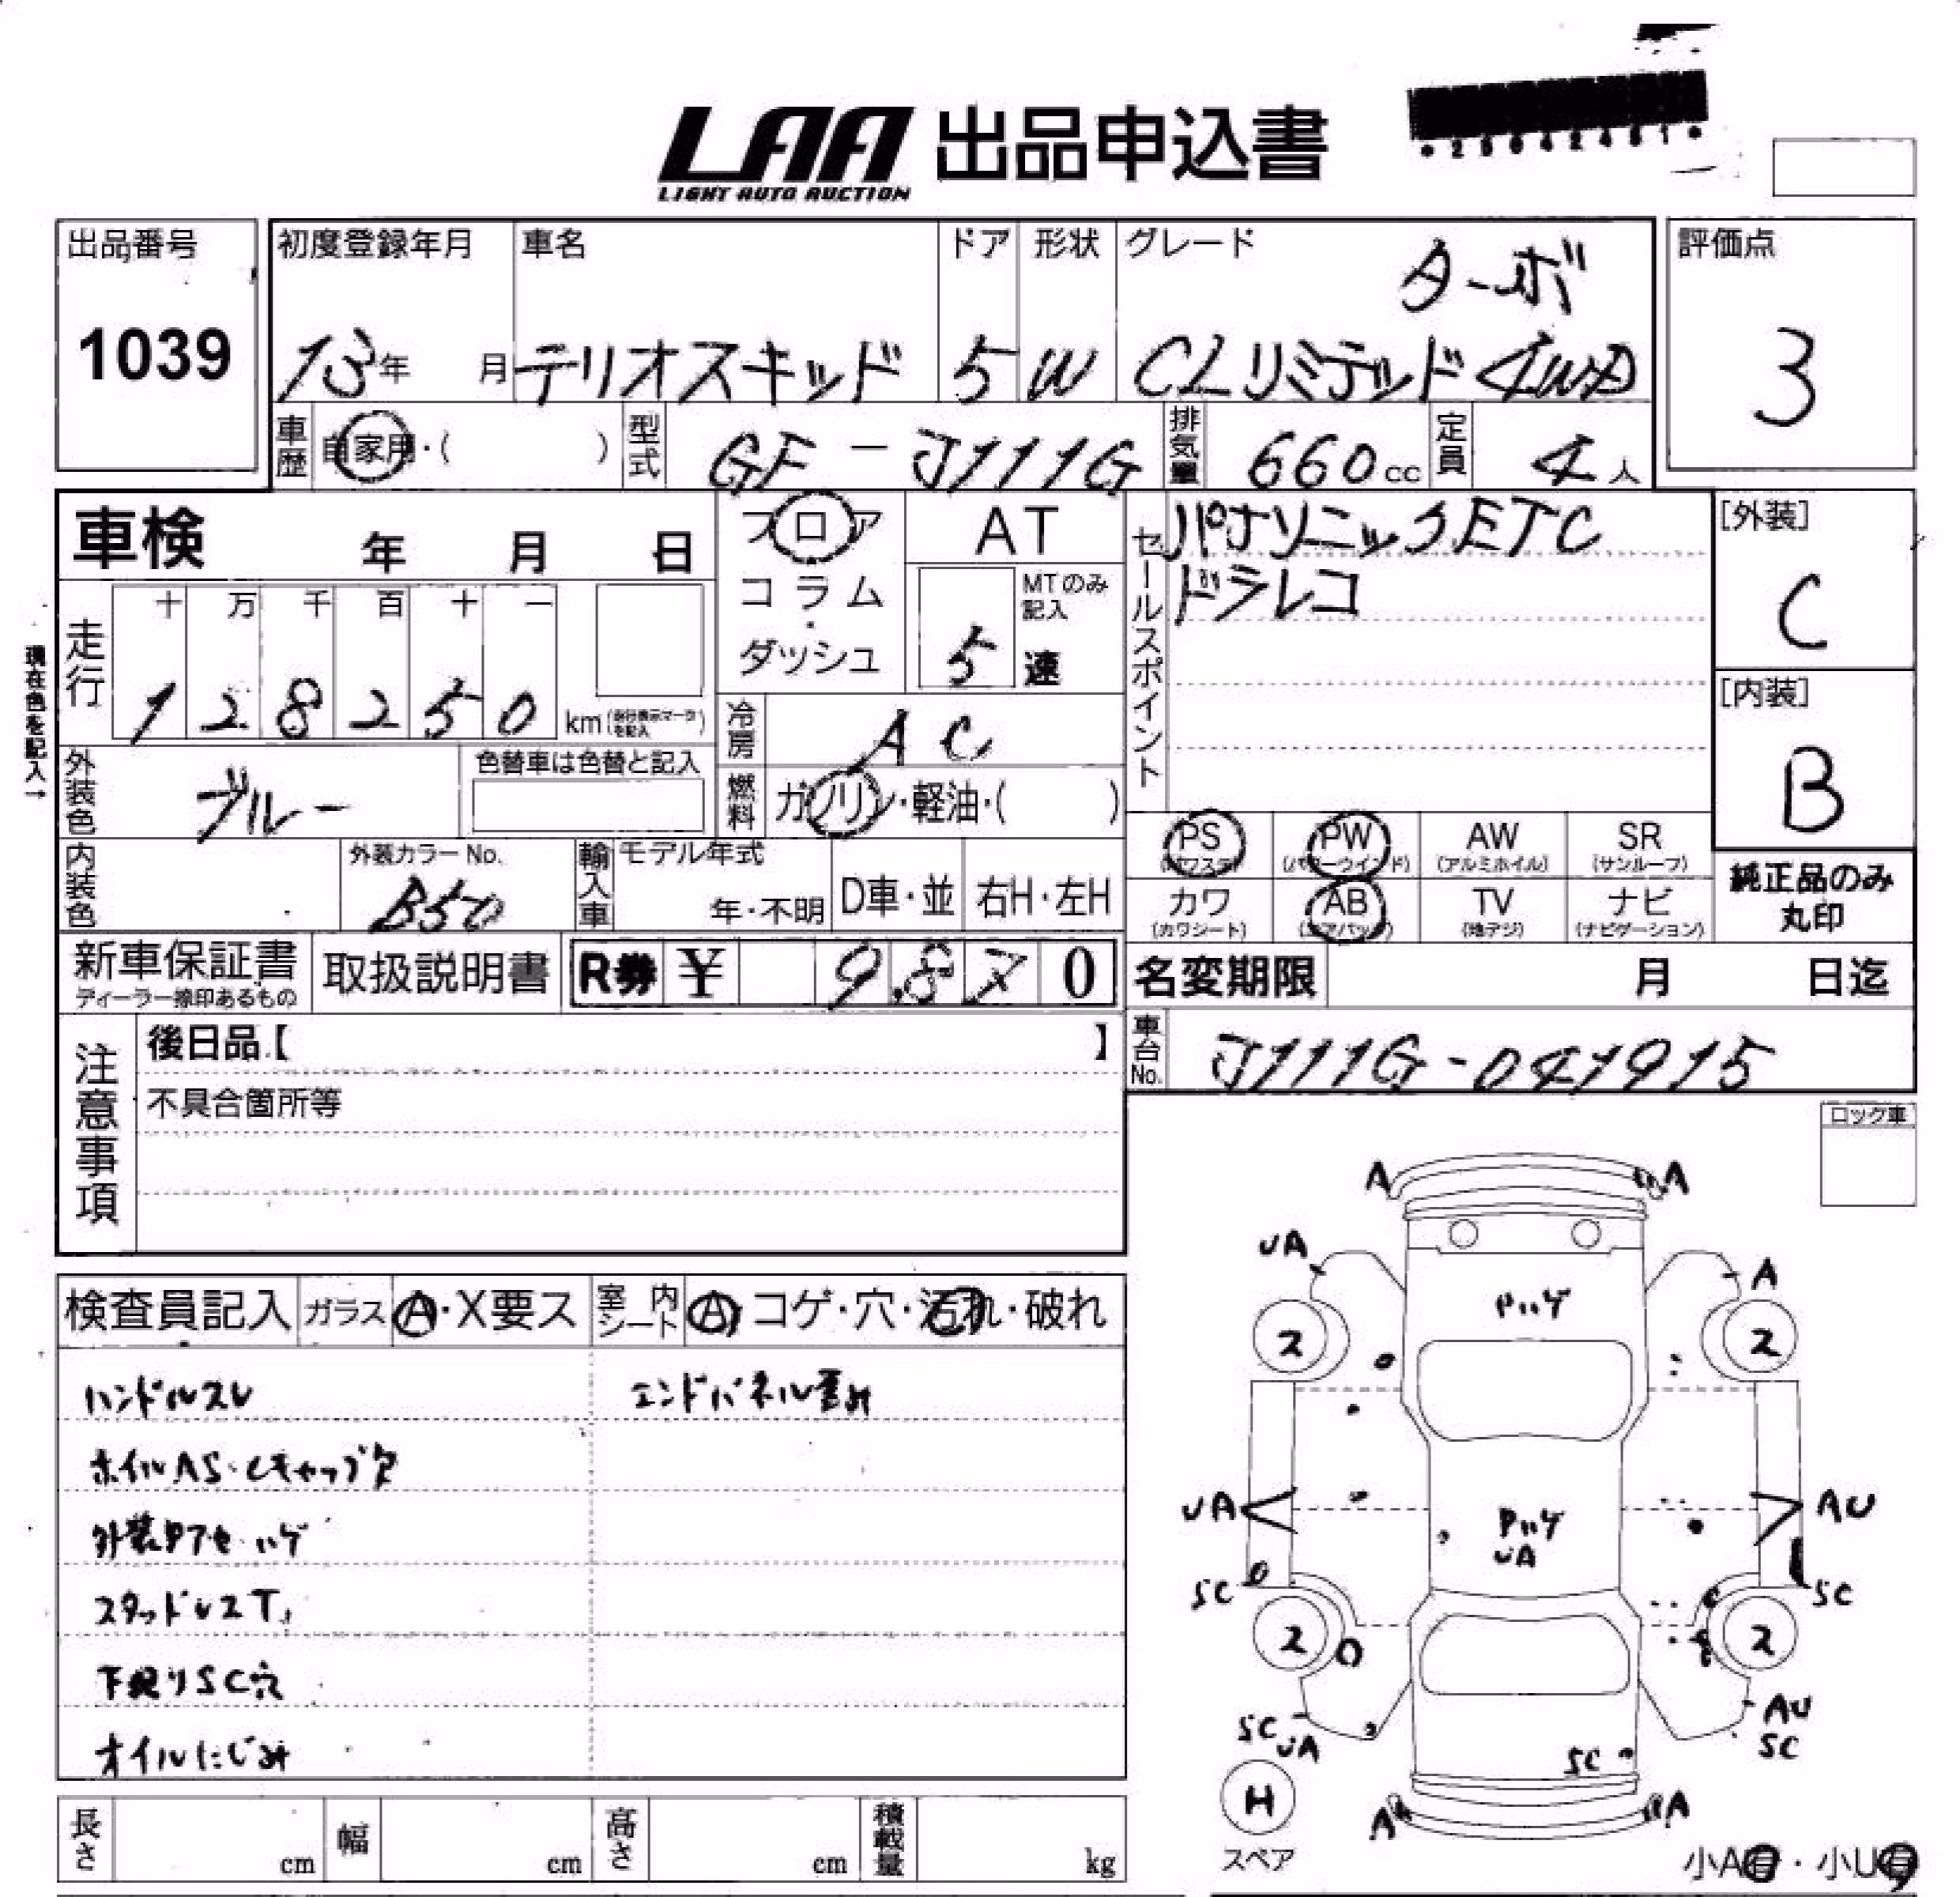 LAA 出品申込書
LIGHT AUTO AUCTION
出品番号
1039
初度登録年月
13年 月
車名
テリオスキッド
ドア
5
形状
W
グレード
ターボ
CLリミテッド4WD
評価点
3
車歴 自家用・( )
型式 GF-J111G
排気量 660cc
定員 4人
車検 年 月 日
フロア
コラム
・
ダッシュ
AT
MTのみ記入
5 速
セールスポイント
パナソニックETC
ドラレコ
[外装]
C
[内装]
B
現在色を記入→
走行
十 万 千 百 十 一
1 2 8 2 5 0 km
冷房 AC
燃料 ガソリン・軽油・( )
外装色 ブルー
色替車は色替と記入
内装色
外装カラーNo.
B50
輸入車
モデル年式
年・不明
D車・並
右H・左H
PS (パワステ)
PW (パワーウインド)
AW (アルミホイル)
SR (サンルーフ)
カワ (カワシート)
AB (エアバッグ)
TV (地デジ)
ナビ (ナビゲーション)
純正品のみ
丸印
新車保証書
ディーラー捺印あるもの
取扱説明書
R券 ¥ 9,870
名変期限 月 日迄
車台No. J111G-041915
注意事項
後日品【 】
不具合箇所等
ロック車
検査員記入
ガラス A・X要ス
室内シート A・コゲ・穴・汚れ・破れ
ハンドルスレ
エンドパネル歪み
ホイルAS・Cキャップ欠
外装タアセ ハゲ
スタッドレスT
下廻りSC穴
オイルにじみ
A A
UA A
Pハゲ
2 2
UA AU
Pハゲ
UA
SC SC
2 2
SC UA
AU
SC
SC
H
スペア
A A
小A有・小U有
長さ cm
幅 cm
高さ cm
積載量 kg